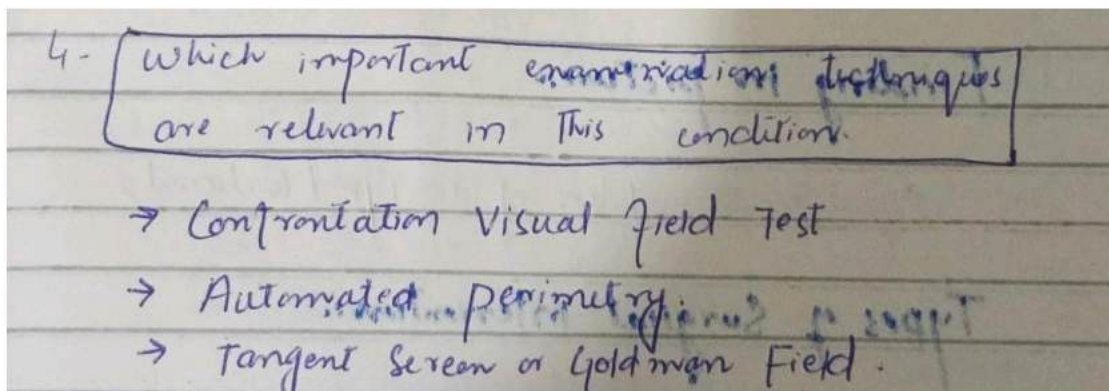 4- Which important examination techniques
are relevant in This condition.
→ Confrontation Visual Field Test
→ Automated perimetry.
Types of Surgical
→ Tangent Screen or Goldman Field.